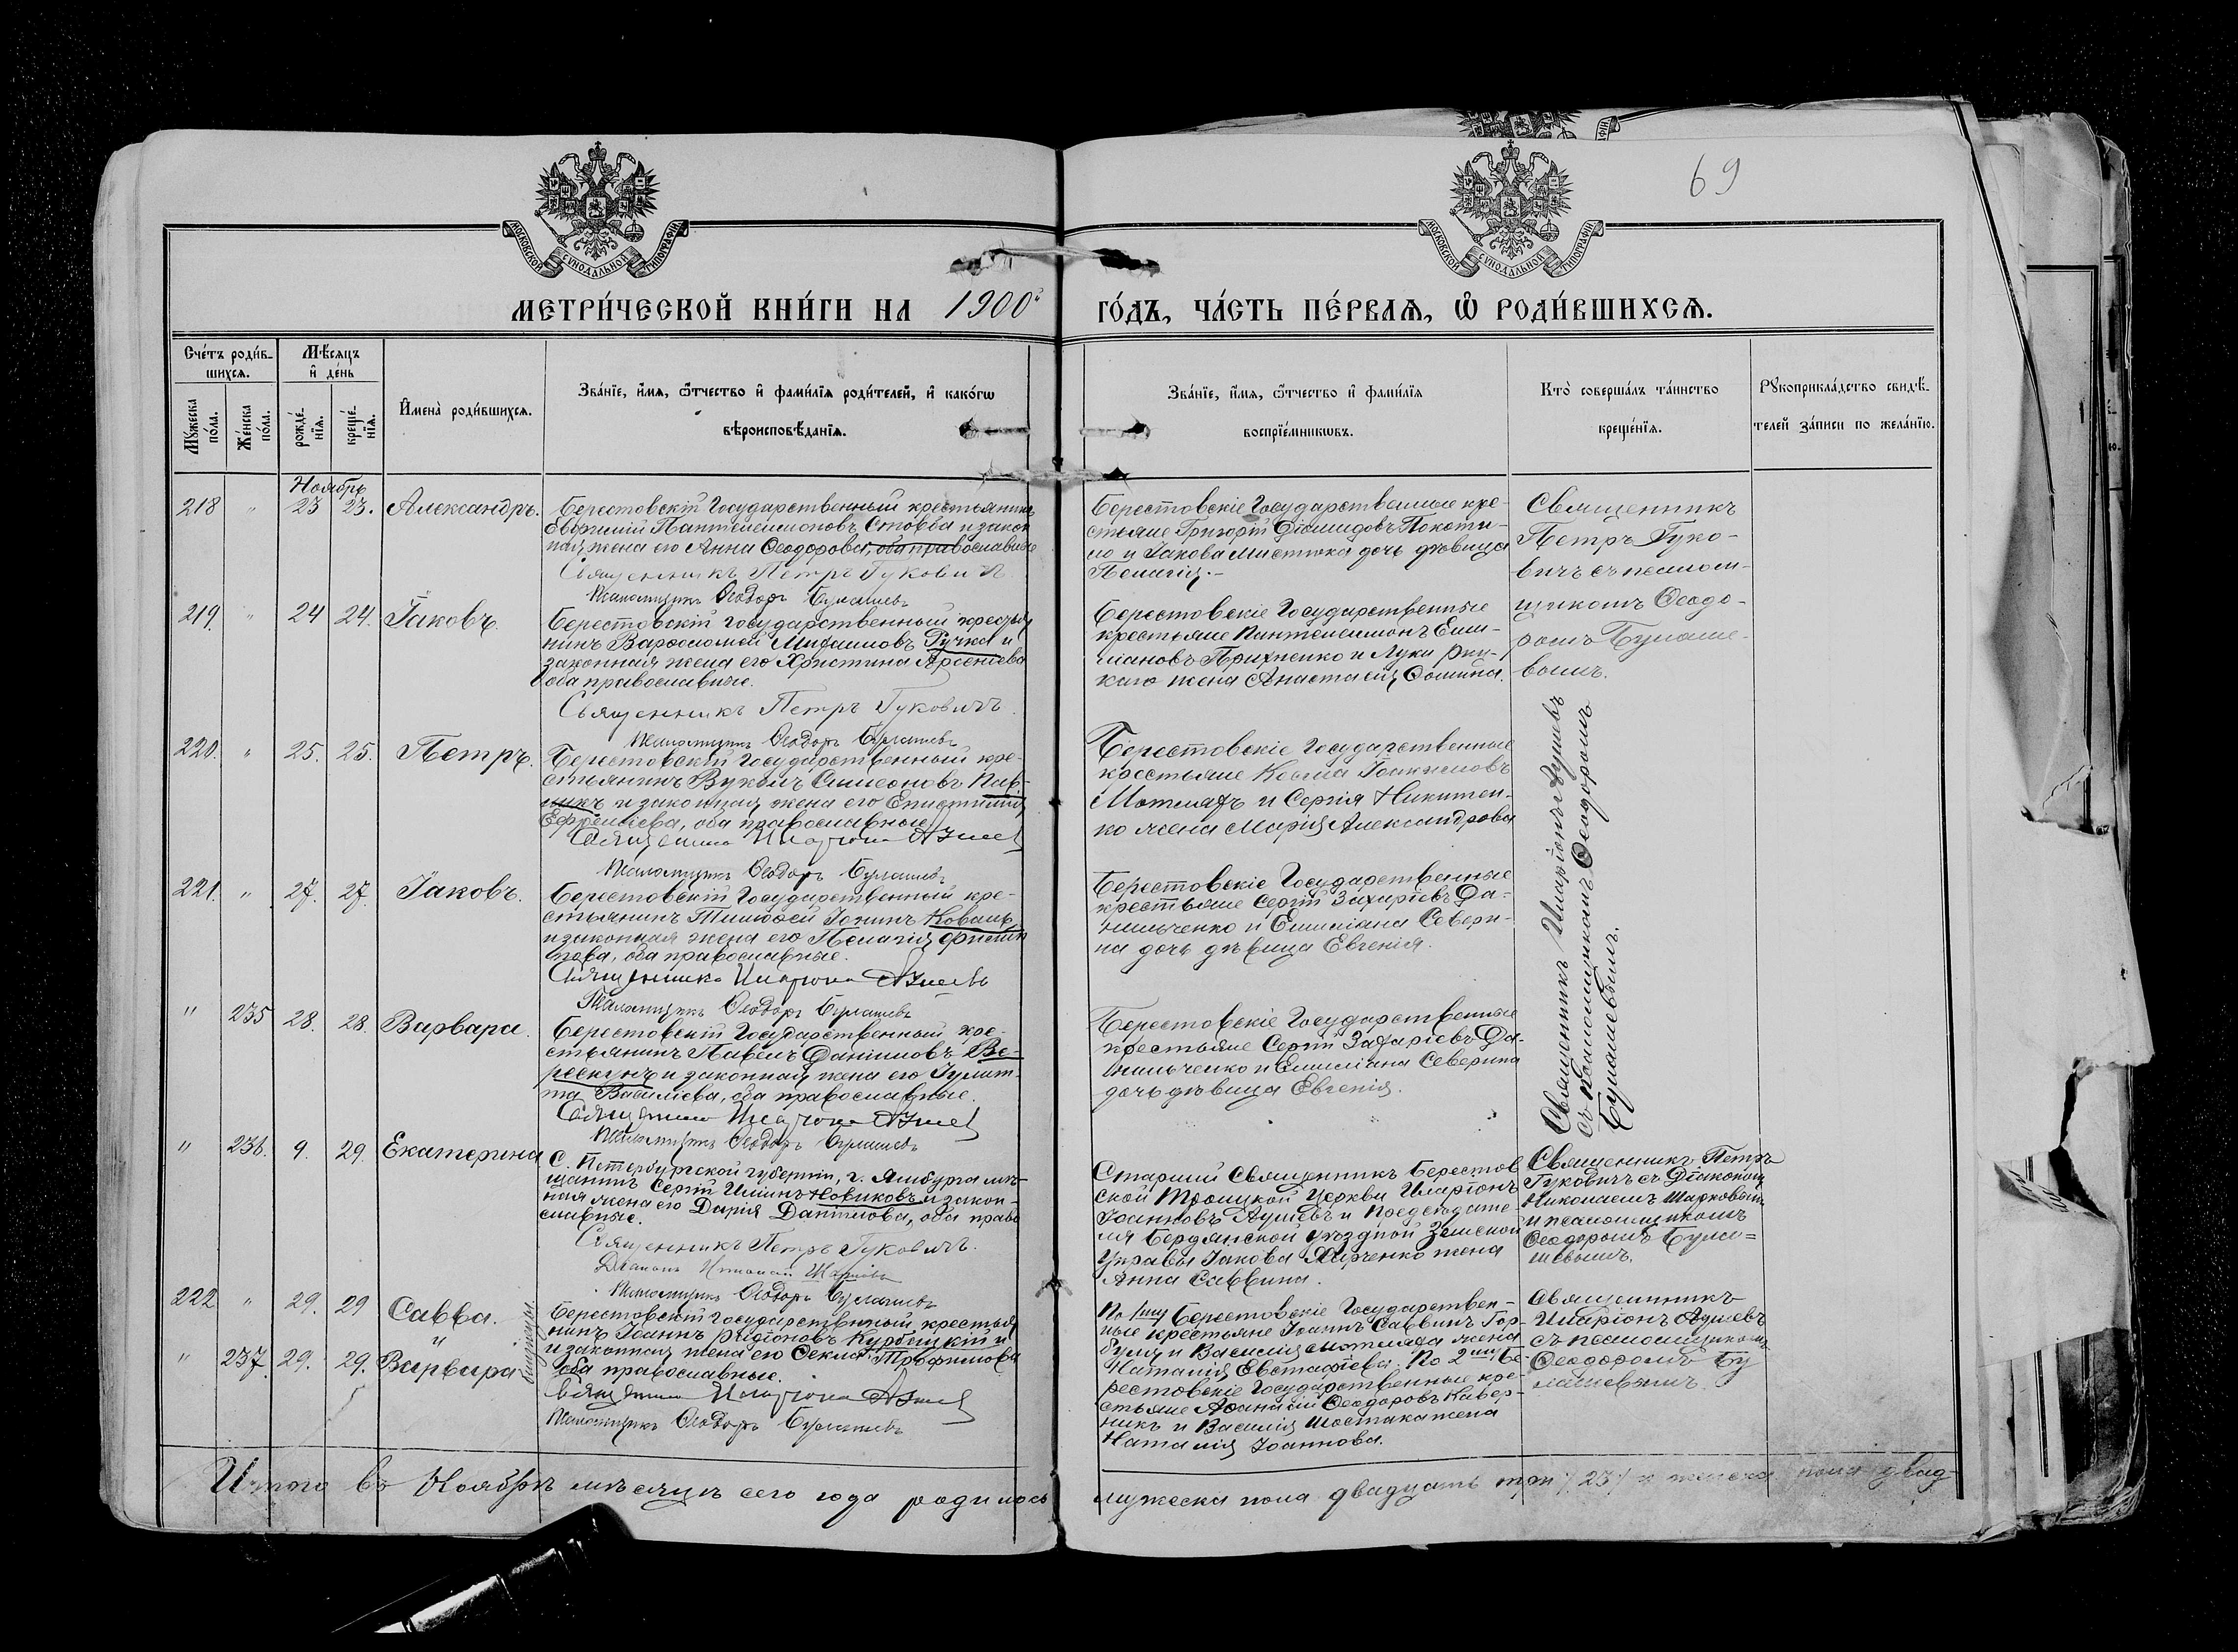 69
МОСКОВСКОЙ СѴНОДАЛЬНОЙ ТИПОГРАФІИ
МОСКОВСКОЙ СѴНОДАЛЬНОЙ ТИПОГРАФІИ
МЕТРИ́ЧЕСКОЙ КНИ́ГИ НА 1900й
ГО́ДЪ, ЧА́СТЬ ПЕ́РВАѦ, Ѿ РОДИ́ВШИХСѦ.
Сче́тъ роди́в-
шихсѧ.
Мꙋ́жеска по́ла.
Же́нска по́ла.
Мѣ́сѧцъ
и҆ де́нь
рожде́-
нїѧ.
креще́-
нїѧ.
И҆мена̀ роди́вшихсѧ.
Зва́нїе, и҆́мѧ, ѻ҆́тчество и҆ фами́лїѧ роди́телей, и҆ како́гѡ
вѣроисповѣ́данїѧ.
Зва́нїе, и҆́мѧ, ѻ҆́тчество и҆ фами́лїѧ
воспрїе́мникѡвъ.
Кто̀ соверша́лъ та́инство
креще́нїѧ.
Рꙋкоприкла́дство свидѣ́-
телей за́писи по жела́нїю.
Ноябрь
218 " 23 23. Александръ.
Берестовскій Государственный крестьянинъ
Евфимій Пантелеимоновъ Стовба и закон
ная жена его Анна Ѳеодорова, оба православные
Священникъ Петръ Гуковичъ
Псаломщикъ Ѳеодоръ Булашевъ
Берестовскіе Государственные кре-
стьяне Григорій Діомидовъ Покоти-
ло и Іакова Мистюка дочь дѣвица
Пелагія.-
Священникъ
Петръ Гуко-
вичъ съ псалом-
щикомъ Ѳеодо-
ромъ Булаше-
вымъ.
219. " 24 24. Іаковъ.
Берестовскій Государственный крестья
нинъ Варѳоломей Михаиловъ Ручка и
законная жена его Христина Арсеніева
оба православные.
Священникъ Петръ Гуковичъ
Псаломщикъ Ѳеодоръ Булашевъ
Берестовскіе Государственные
крестьяне Пантелеимонъ Еми-
ліановъ Прихненко и Луки
жена Анастасія Ѳомина.
220. " 25. 25. Петръ.
Берестовскій Государственный кре-
стьянинъ Вуколъ Симеоновъ
и законная жена его Епистимія
оба православные.
Священникъ Иларіонъ Ауліевъ
Псаломщикъ Ѳеодоръ Булашевъ
Берестовскіе Государственные
крестьяне Косма Іоакимовъ
и Сергія Никитен-
ко жена Марія Александрова
Священникъ Иларіонъ Ауліевъ
съ псаломщикомъ Ѳеодоромъ
Булашевымъ.
221. " 27. 27. Іаковъ.
Берестовскій Государственный кре-
стьянинъ Тимоѳей Іонинъ Коваль
и законная жена его Пелагія
оба православные.
Священникъ Иларіонъ Ауліевъ
Псаломщикъ Ѳеодоръ Булашевъ
Берестовскіе Государственные
крестьяне Сергій Захаріевъ Да-
нильченко и Емиліана Севери-
на дочь дѣвица Евгенія.
" 235 28. 28. Варвара.
Берестовскій Государственный кре-
стьянинъ Павелъ Даніиловъ Ве-
рескунъ и законная жена его Іулит-
та Васильева, оба православные.
Священникъ Иларіонъ Ауліевъ
Псаломщикъ Ѳеодоръ Булашевъ
Берестовскіе Государственные
крестьяне Сергій Захаріевъ Да-
нильченко и Емиліана Северина
дочь дѣвица Евгенія.
" 236. 9. 29. Екатерина
С. Петербургской губерніи, г. Ямбурга мѣ-
щанинъ Сергій Ильинъ Новиковъ и закон-
ная жена его Дарія Даніилова, оба право
славные.
Священникъ Петръ Гуковичъ.
Діаконъ Николай
Псаломщикъ Ѳеодоръ Булашевъ
Старшій Священникъ Берестов
ской Троицкой Церкви Иларіонъ
Іоанновъ Ауліевъ и Председате-
ля Бердянской уѣздной Земской
Управы Іакова Харченко жена
Анна Саввина.
Священникъ Петръ
Гуковичъ съ Діакономъ
Николаемъ
и псаломщикомъ
Ѳеодоромъ Була=
шевымъ.
222 " 29. 29 Савва.
"
" 237. 29. 29. Варвара
близнецы
Берестовскій Государственный крестья
нинъ Іоаннъ Родіоновъ Курбацкій и
и законная жена его Ѳекла Трофимова
оба православные.
Священникъ Иларіонъ Ауліевъ
Псаломщикъ Ѳеодоръ Булашевъ
По 1му Берестовскіе Государствен-
ные крестьяне Іоаннъ Саввинъ Гор-
и Василія жена
Наталія Евстафіева. По 2му Бе-
рестовскіе Государственные кре-
стьяне Аѳанасій Ѳеодоровъ Кавер-
никъ и Василія Шостака жена
Наталія Іоаннова.
Священникъ
Иларіонъ Ауліевъ
съ псаломщикомъ
Ѳеодоромъ Бу
лашевымъ.
Итого въ Ноябрѣ мѣсяцѣ сего года родилось
мужеска пола двадцать три /23/ и женска пола двад-